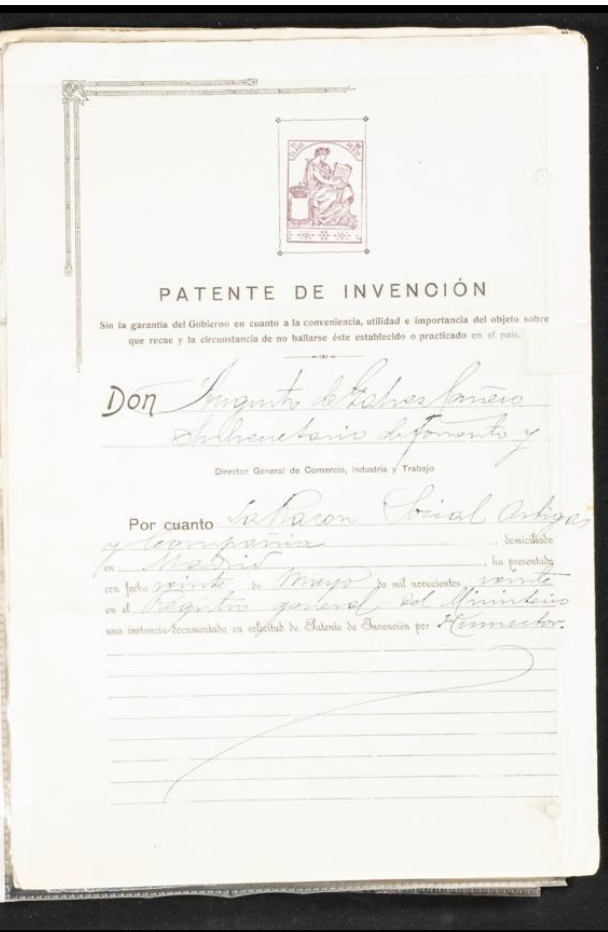 PATENTE DE INVENCIÓN
Sin la garantía del Gobierno en cuanto a la conveniencia, utilidad e importancia del objeto sobre
que recae y la circunstancia de no hallarse éste establecido o practicado en el país.
Don Augusto de
Subsecretario de Fomento y
Director General de Comercio, Industria y Trabajo
Por cuanto La Razon Social Artigas
y Compañia, domiciliado
en Madrid, ha presentado
con fecha veinte de Mayo de mil novecientos veinte
en el Registro general del Ministerio
una instancia documentada en solicitud de Patente de Invención por Humector.